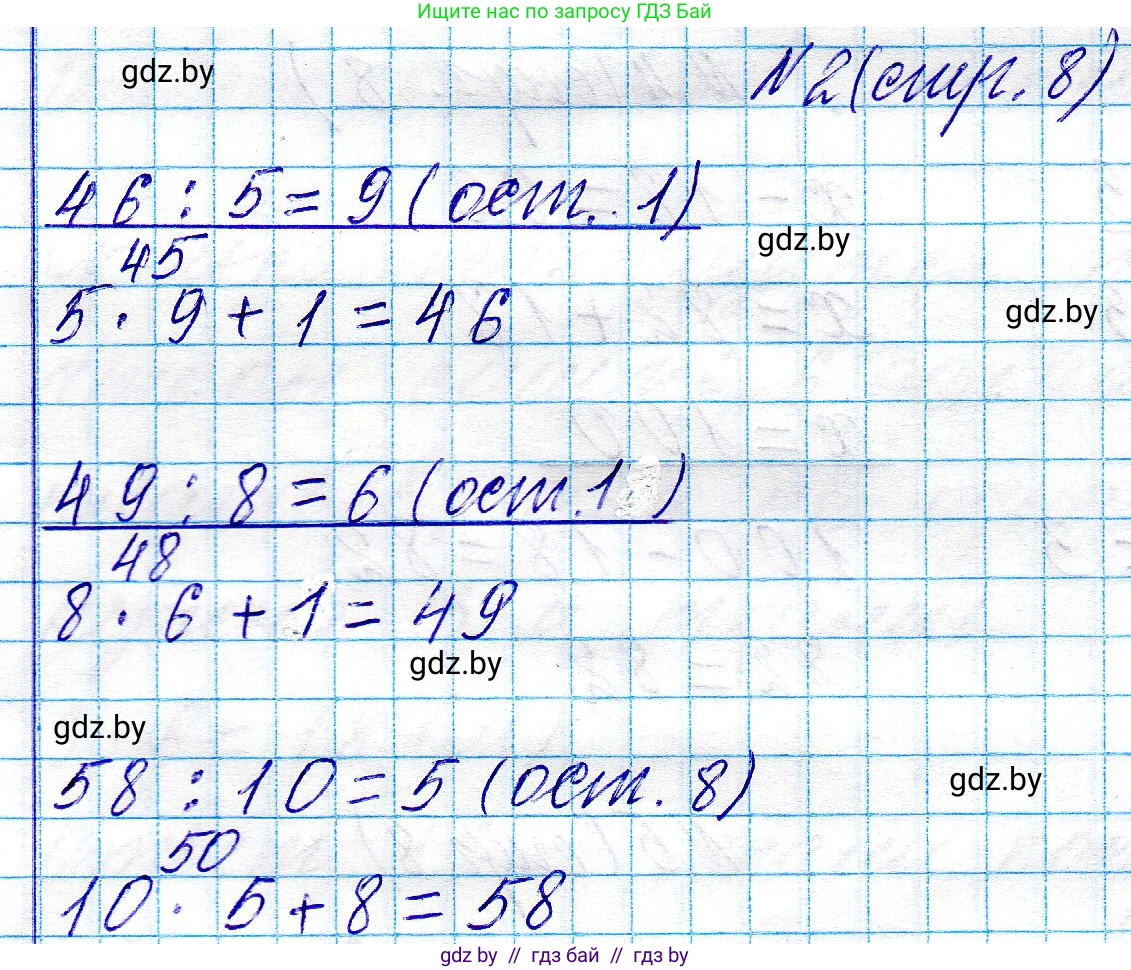 Ищите нас по запросу ГДЗ Бай
gdz.by
№2 (стр. 8)
46 : 5 = 9 (ост. 1)
gdz.by
45
gdz.by
5 · 9 + 1 = 46
49 : 8 = 6 (ост. 1)
48
8 · 6 + 1 = 49
gdz.by
gdz.by
58 : 10 = 5 (ост. 8)
gdz.by
50
10 · 5 + 8 = 58
gdz.by // гдз бай // гдз by